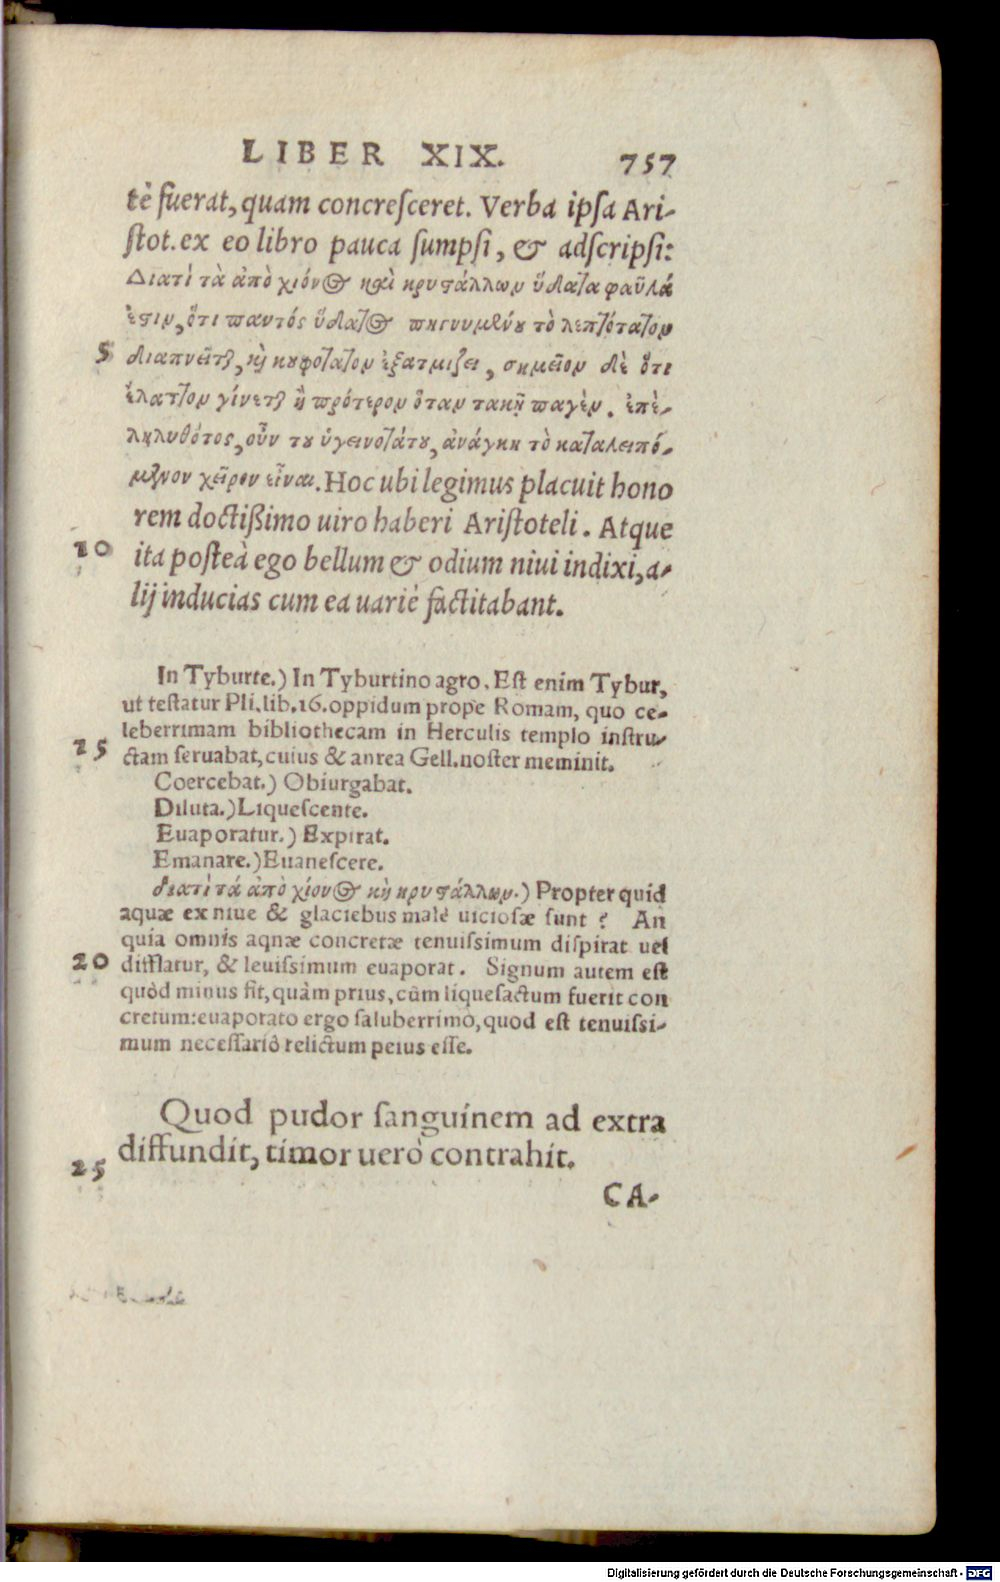 LIBER XIX. 757
tè fuerat, quam concresceret. Verba ipsa Ari-
stot. ex eo libro pauca sumpsi, & adscripsi:
Διατί τὰ ἀπὸ χιόνος καὶ κρυστάλλων ὕδατα φαῦλά
ἐστιν, ὅτι παντός ὕδατος πηγνυμένου τὸ λεπτότατον
5 διαπνεῖται, καὶ κουφότατον ἐξατμίζει, σημεῖον δὲ ὅτι
ἔλαττον γίνεται ἢ πρότερον ὅταν τακῇ παγὲν. ἀπε-
ληλυθότος, οὖν του ὑγεινοτάτου, ἀνάγκη τὸ καταλειπό-
μενον χεῖρον εἶναι. Hoc ubi legimus placuit hono
rem doctißimo uiro haberi Aristoteli. Atque
10 ita posteà ego bellum & odium niui indixi, a-
lij inducias cum ea uariè factitabant.
In Tyburte.) In Tyburtino agro. Est enim Tybur,
ut testatur Pli. lib. 16. oppidum prope Romam, quo ce-
leberrimam bibliothecam in Herculis templo instru-
15 ctam seruabat, cuius & antea Gell. noster meminit.
Coercebat.) Obiurgabat.
Diluta.) Liquescente.
Euaporatur.) Expirat.
Emanare.) Euanescere.
διατί τά ἀπὸ χίονος καὶ κρυστάλλων.) Propter quid
aquæ ex niue & glaciebus malè uiciosæ sunt? An
quia omnis aqnæ concretæ tenuissimum dispirat uel
20 difflatur, & leuissimum euaporat. Signum autem est
quòd minus fit, quàm prius, cùm liquefactum fuerit con
cretum: euaporato ergo saluberrimo, quod est tenuissi-
mum necessariò relictum peius esse.
Quod pudor sanguinem ad extra
diffundit, timor uerò contrahit.
25
CA-
Digitalisierung gefördert durch die Deutsche Forschungsgemeinschaft - DFG